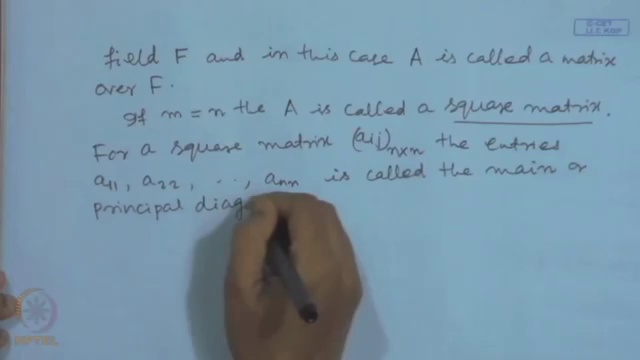 field F and in this case A is called a matrix
over F.
If m = n the A is called a square matrix.
For a square matrix (aij)n×n the entries
a11, a22, ..., ann is called the main or
principal diag
NPTEL